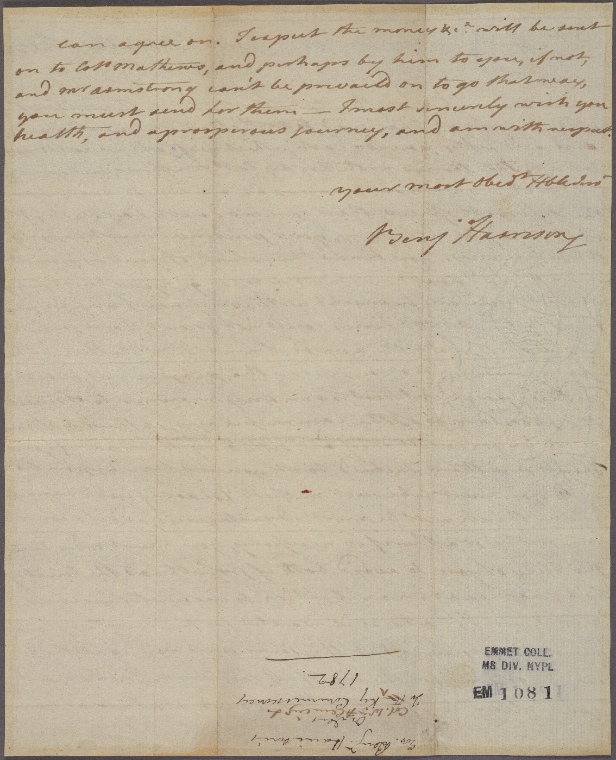 can agree on. I expect the money &c.a will be sent
on to Coll Mathews, and perhaps by him to you, if not,
and mr armstrong can't be prevaild on to go that way,
you must send for them — I most sincerely wish you
health, and a prosperous journey, and am with respect.
your most Obedt Hble Servt
Benj. Harrison
EMMET COLL.
MS DIV. NYPL
EM 1081
Gov. Benj. Harrison's
Col. Wm
to the Ky Commissioners
1782.